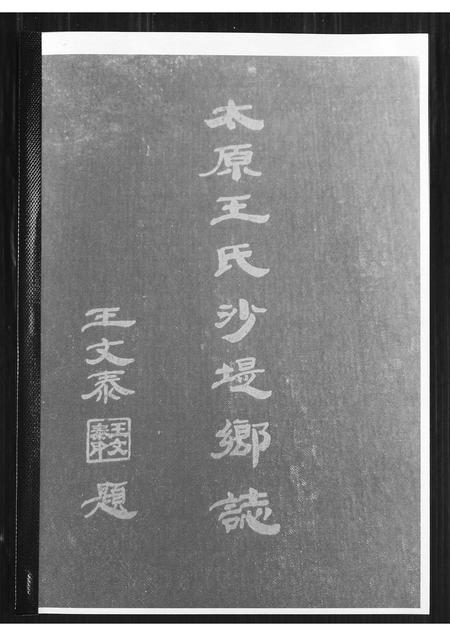 太原王氏沙堤鄉誌
王文泰
王文
泰印
題